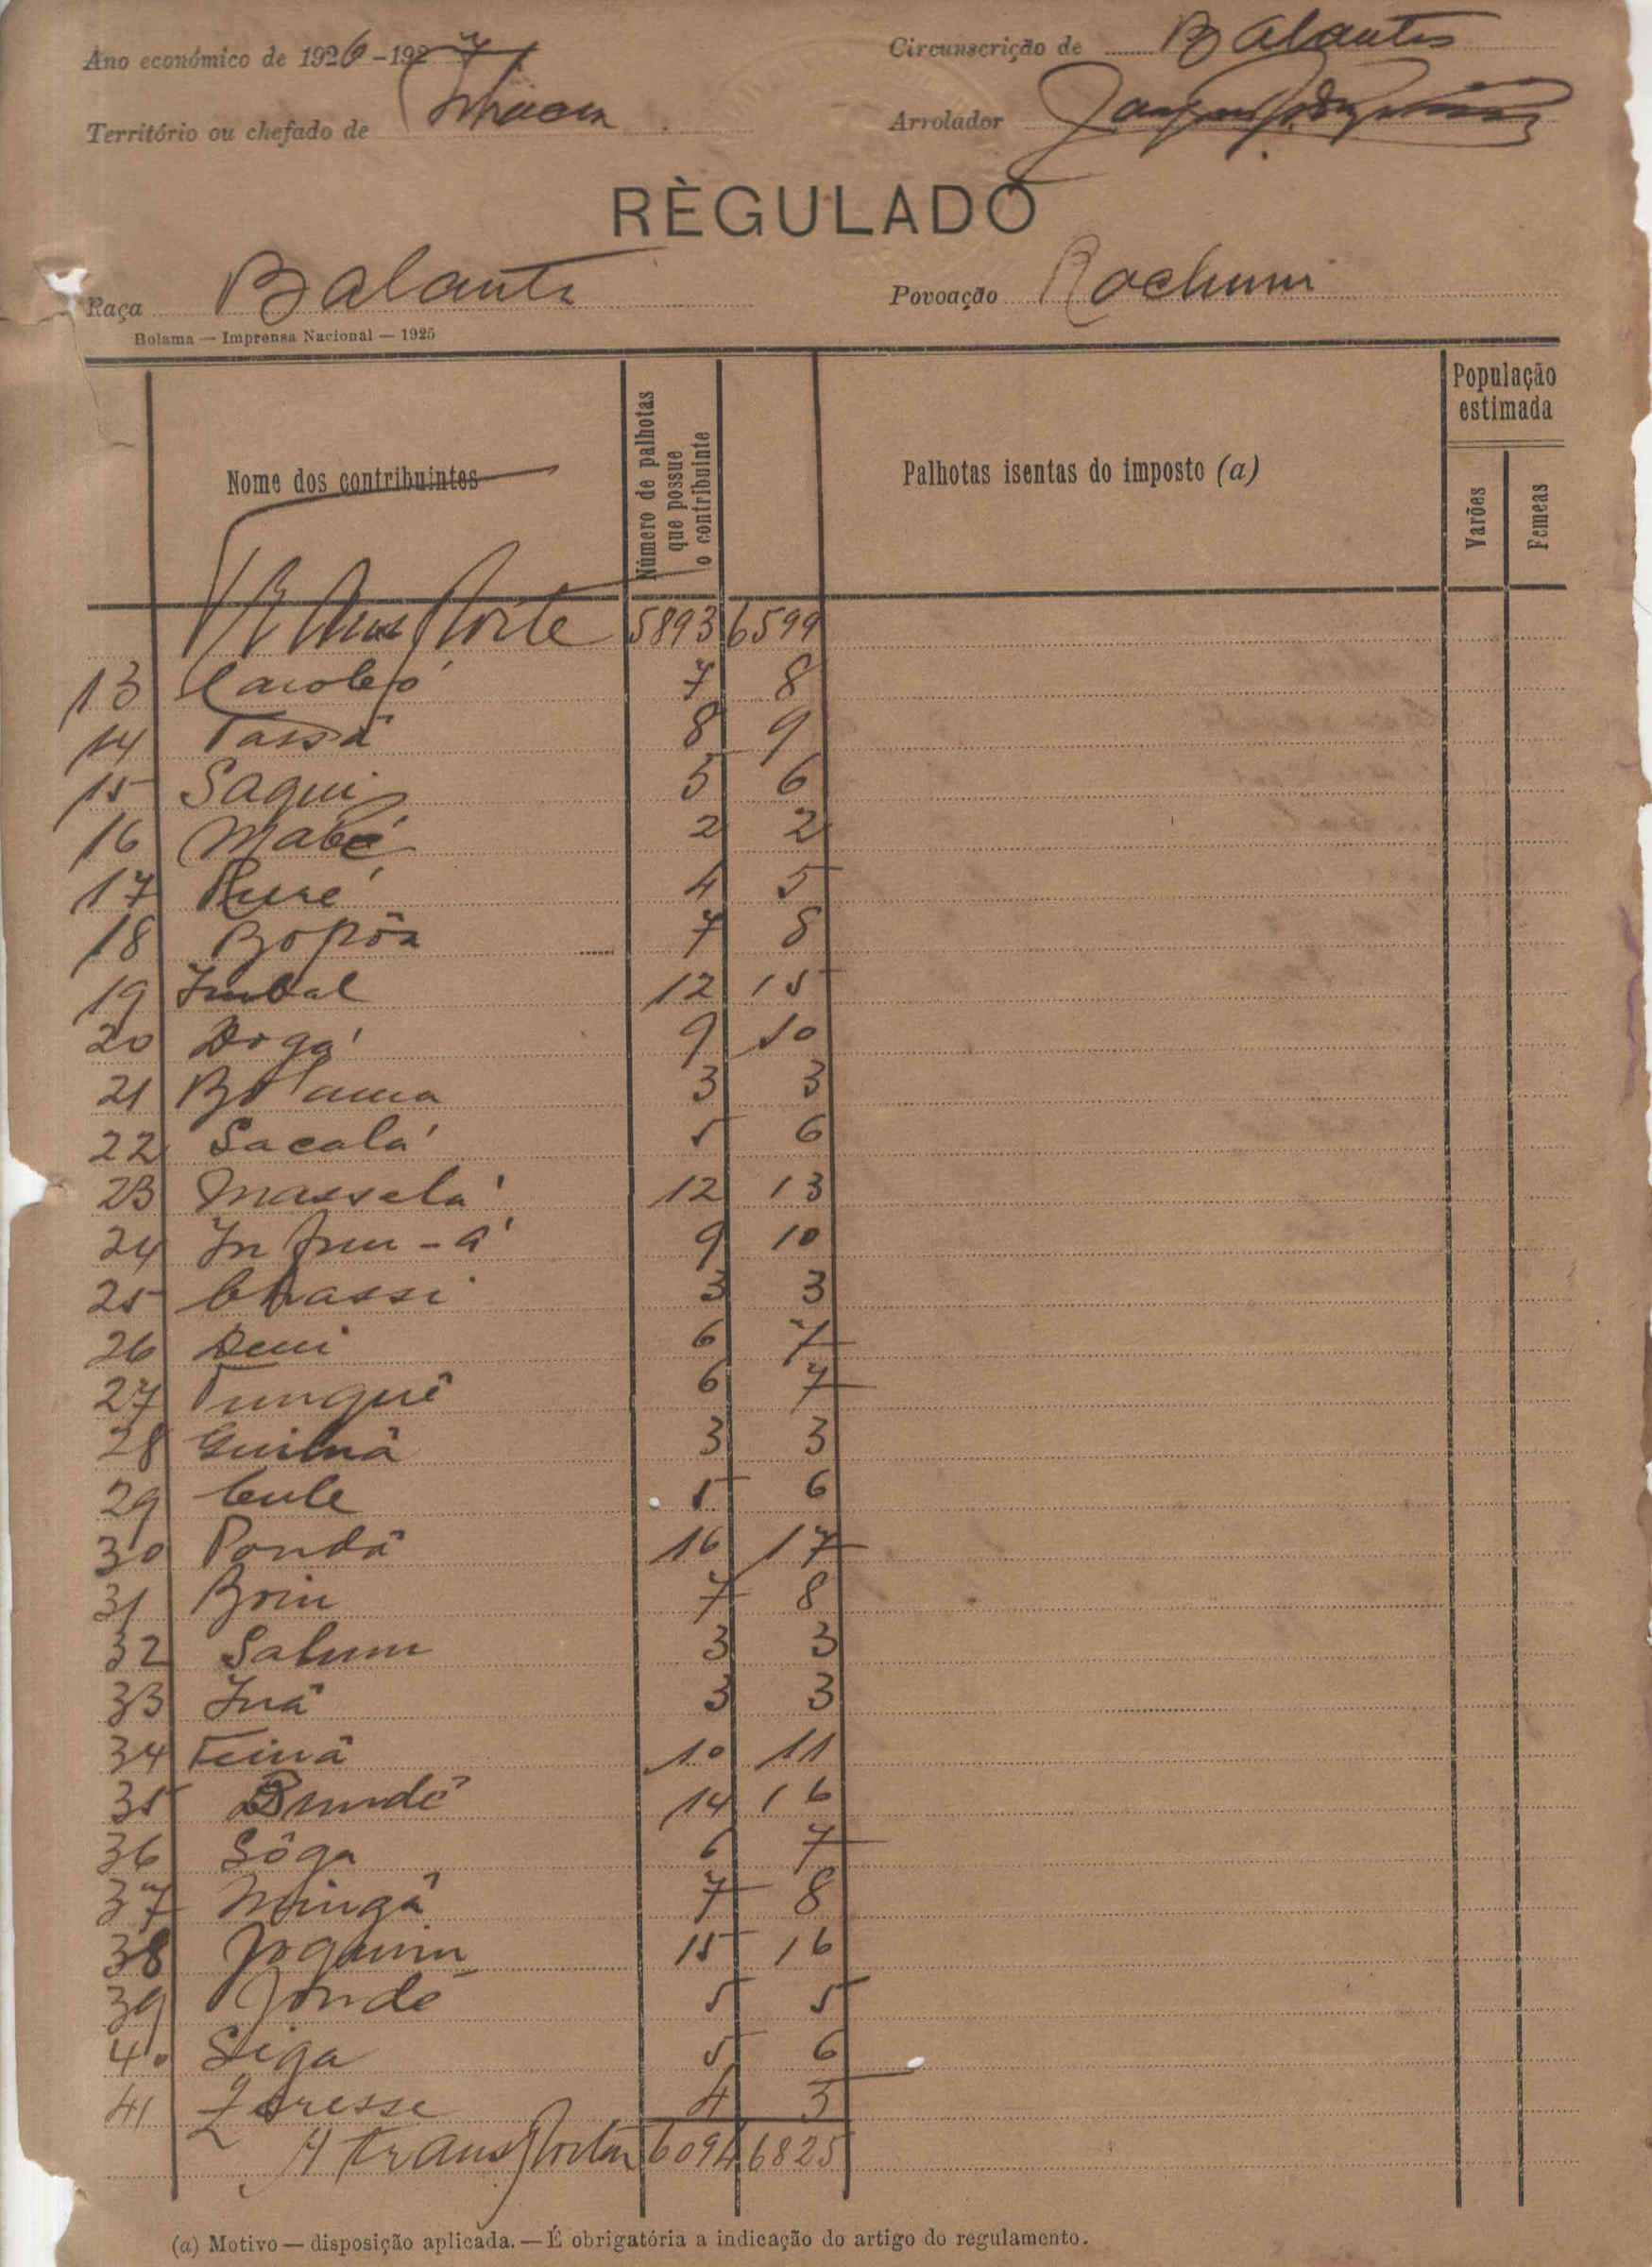 Ano económico de 1926-1927
Circunscrição de Balantes
Território ou chefado de
Arrolador
RÈGULADO
Raça Balanta
Povoação Rochum
Bolama — Imprensa Nacional — 1925
Nome dos contribuintes
Número de palhotas que possue o contribuinte
Palhotas isentas do imposto (a)
População estimada
Varões
Femeas
Transporte 5893 6599
13 7 8
14 Tassá 8 9
15 Saqui 5 6
16 Mabé 2 2
17 4 5
18 7 8
19 Imbal 12 15
20 Dogá 9 10
21 Bolama 3 3
22 Sacalá 5 6
23 Massalá 12 13
24 9 10
25 Chassi 3 3
26 6 7
27 Tunguê 6 7
28 3 3
29 Cule 5 6
30 Pondâ 16 17
31 7 8
32 3 3
33 3 3
34 10 11
35 14 16
36 Sôga 6 7
37 Mingâ 7 8
38 Joquim 15 16
39 Jondé 5 5
40 Siga 5 6
41 4 5
A transportar 6094 6825
(a) Motivo — disposição aplicada. — É obrigatória a indicação do artigo do regulamento.